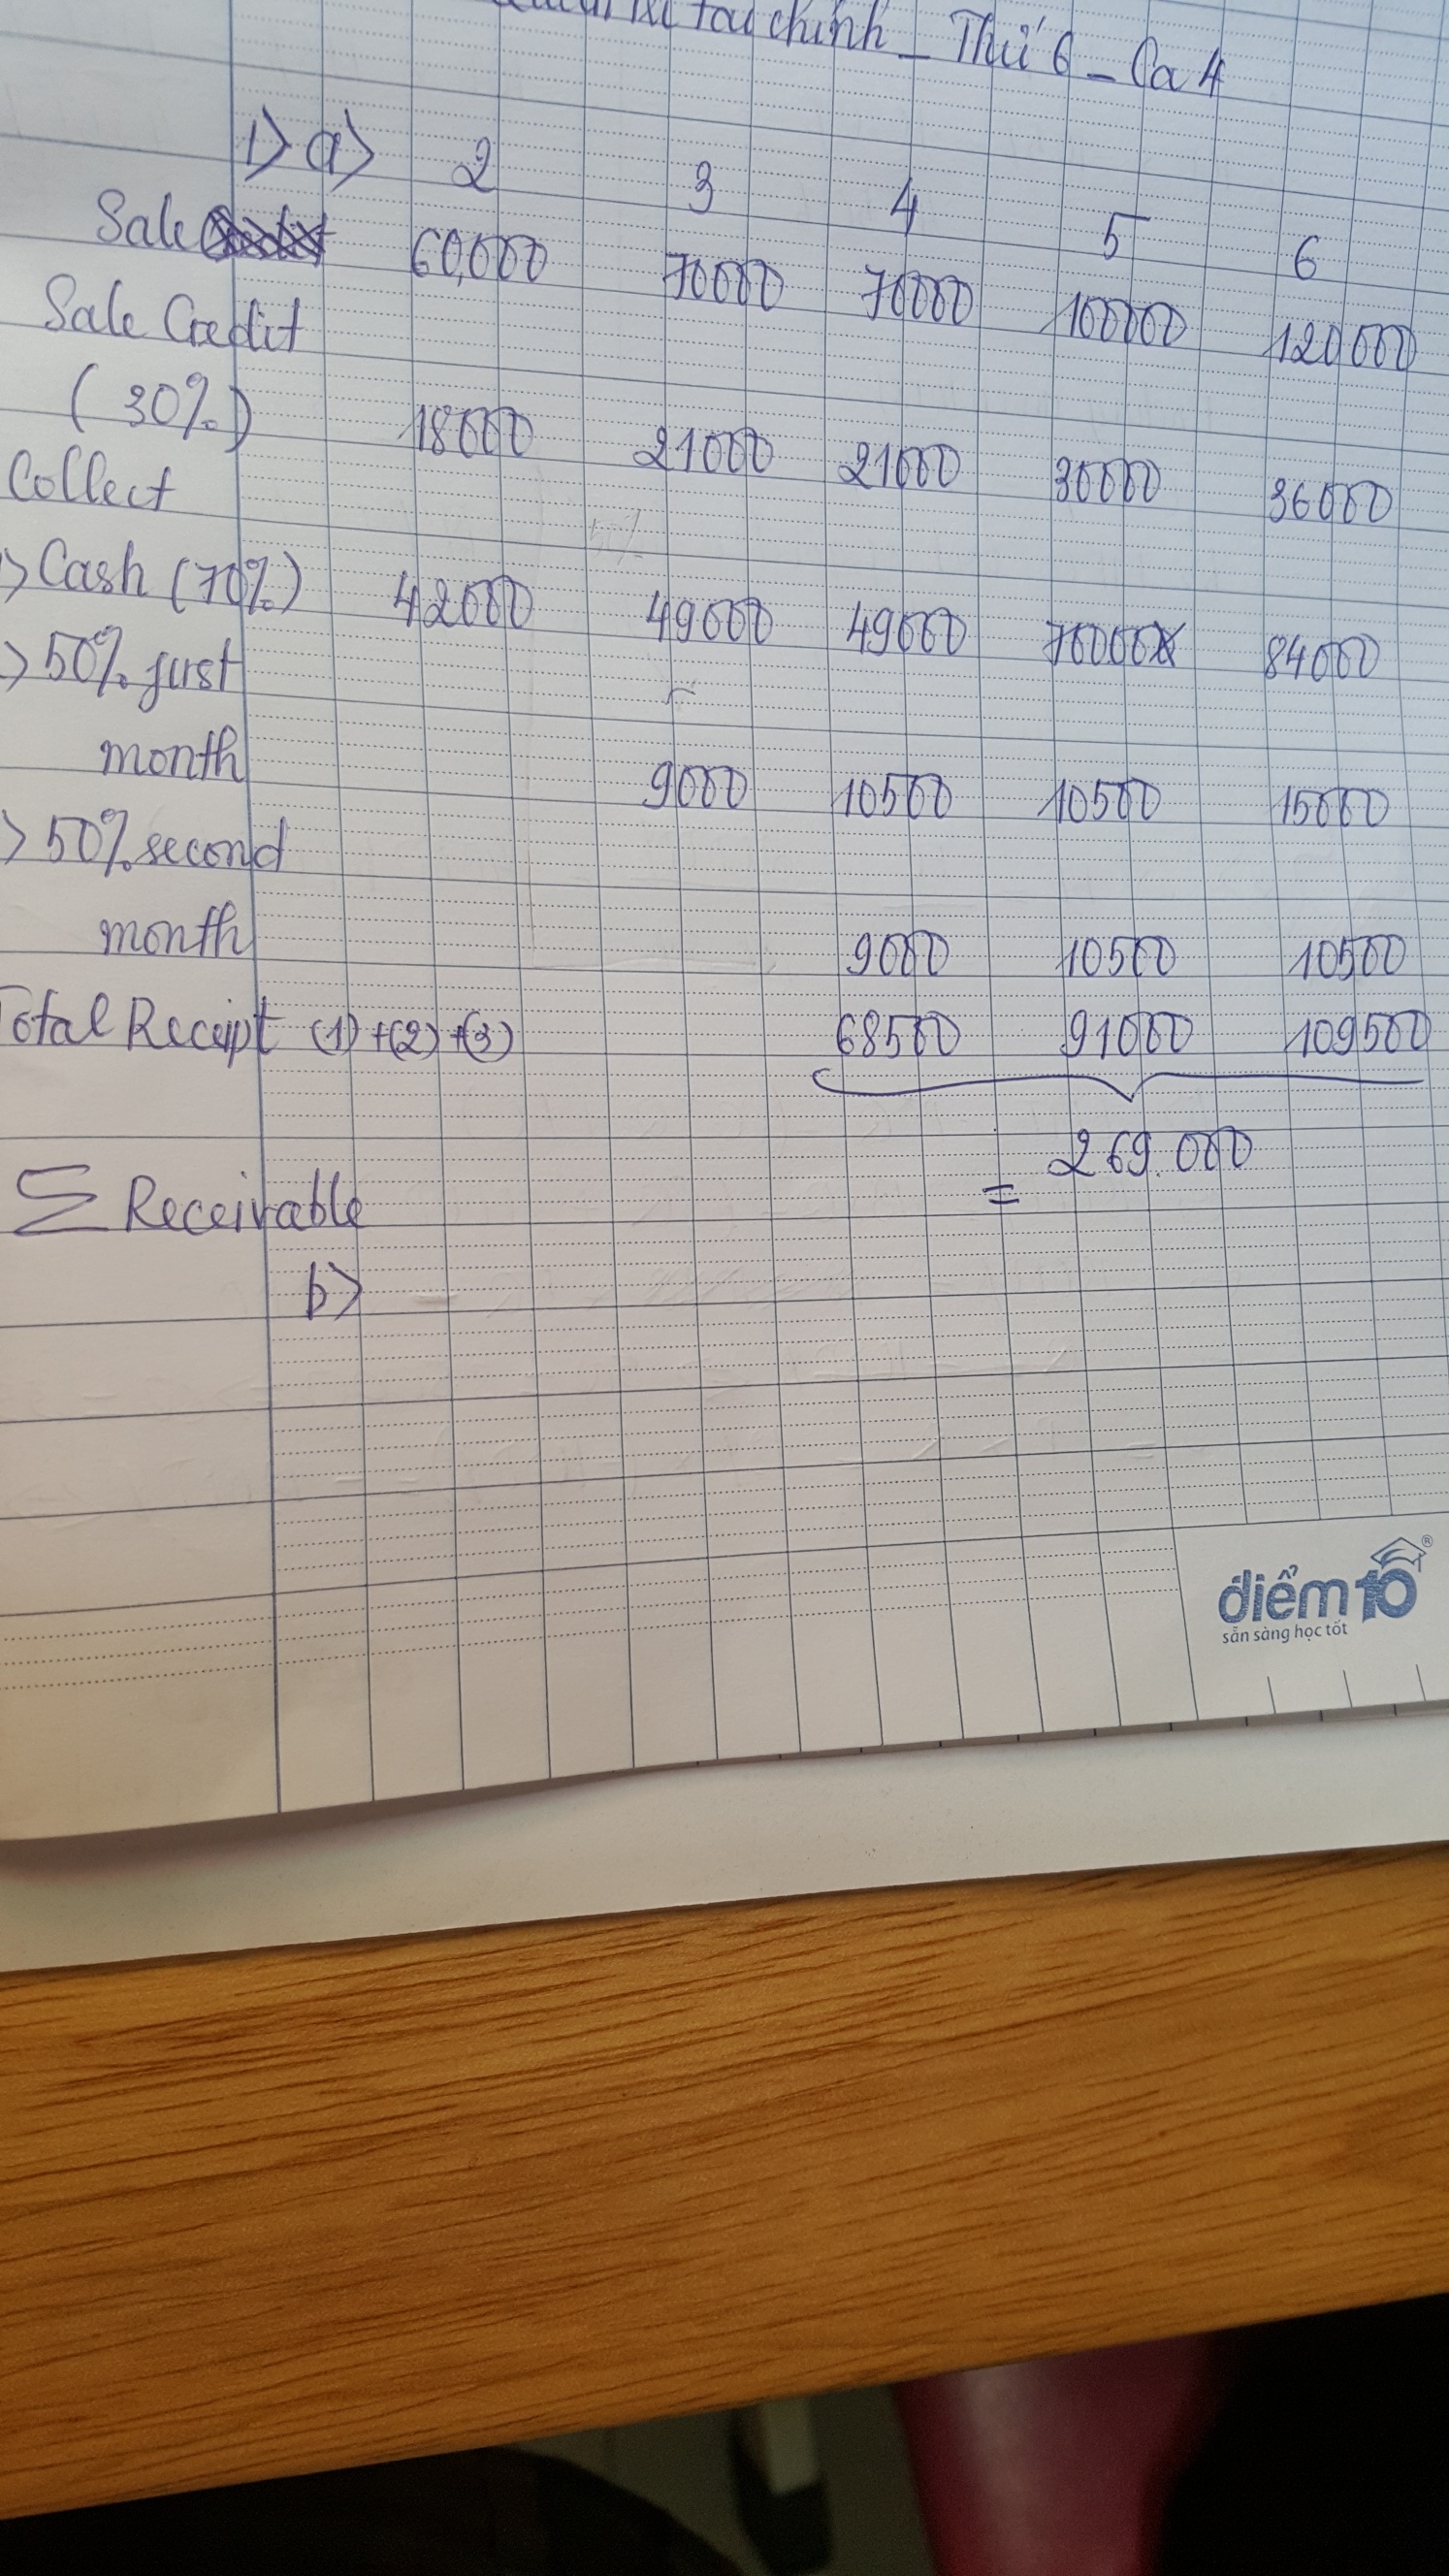 tài chính _ Thứ 6 _ Ca 4
1> a> 2 3 4 5 6
Sale 60,000 70000 70000 100000 120000
Sale Credit
(30%) 18000 21000 21000 30000 36000
Collect
> Cash (70%) 42000 49000 49000 70000 84000
> 50% just
month 9000 10500 10500 15000
> 50% second
month 9000 10500 10500
Total Receipt (1) + (2) + (3) 68500 91000 109500
Σ Receivable = 269.000
b>
điểm10®
sẵn sàng học tốt